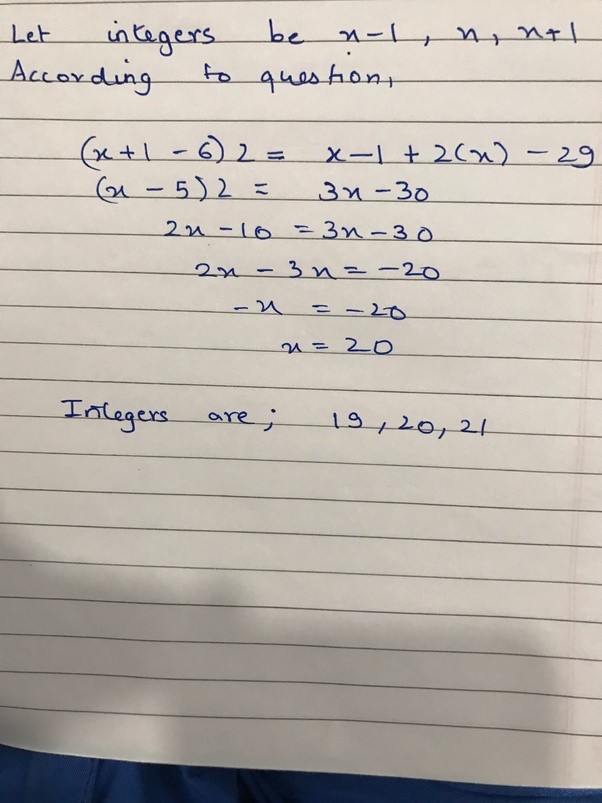 Let integers be x-1, x, x+1
According to question,
(x+1 - 6) 2 = x-1 + 2(x) - 29
(x - 5) 2 = 3x - 30
2x - 10 = 3x - 30
2x - 3x = -20
-x = -20
x = 20
Integers are; 19, 20, 21